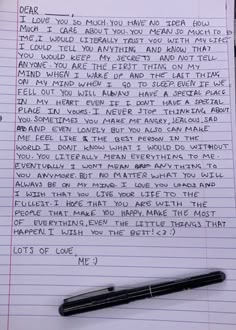 DEAR ______,
I LOVE YOU SO MUCH. YOU HAVE NO IDEA HOW
MUCH I CARE ABOUT YOU. YOU MEAN SO MUCH TO
ME, I WOULD LITERALLY TRUST YOU WITH MY LIFE.
I COULD TELL YOU ANYTHING AND KNOW THAT
YOU WOULD KEEP MY SECRETS AND NOT TELL
ANYONE. YOU ARE THE FIRST THING ON MY
MIND WHEN I WAKE UP AND THE LAST THING
ON MY MIND WHEN I GO TO SLEEP. EVEN IF WE
FELL OUT YOU WILL ALWAYS HAVE A SPECIAL PLACE
IN MY HEART EVEN IF I DON'T HAVE A SPECIAL
PLACE IN YOURS. I NEVER STOP THINKING ABOUT
YOU. SOMETIMES YOU MAKE ME ANGRY, JEALOUS, SAD
AND EVEN LONELY BUT YOU ALSO CAN MAKE
ME FEEL LIKE THE BEST PERSON IN THE
WORLD. I DON'T KNOW WHAT I WOULD DO WITHOUT
YOU. YOU LITERALLY MEAN EVERYTHING TO ME.
EVENTUALLY I WON'T MEAN ANYTHING TO
YOU ANYMORE. BUT NO MATTER WHAT YOU WILL
ALWAYS BE ON MY MIND. I LOVE YOU LOADS AND
I WISH THAT YOU LIVE YOUR LIFE TO THE
FULLEST. I HOPE THAT YOU ARE WITH THE
PEOPLE THAT MAKE YOU HAPPY, MAKE THE MOST
OF EVERYTHING, EVEN THE LITTLE THINGS THAT
HAPPEN. I WISH YOU THE BEST! <3 :)
LOTS OF LOVE,
ME :)